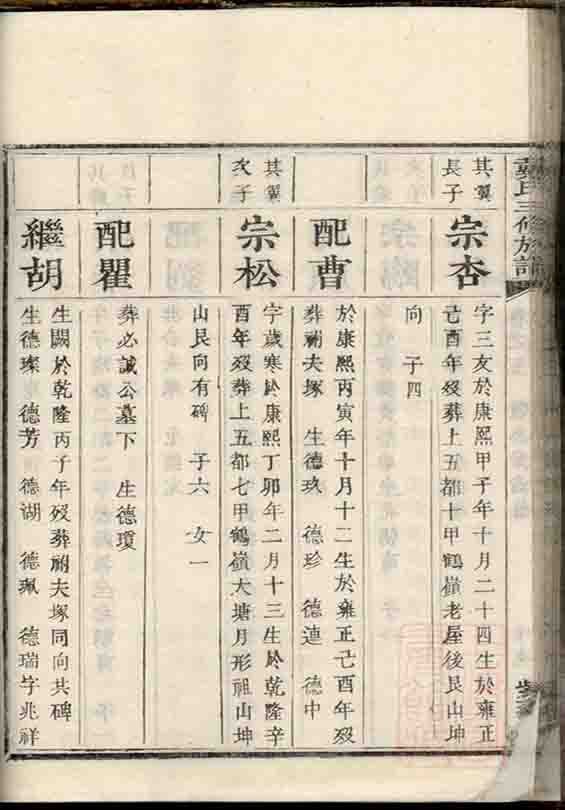 氏三修族譜
其翼長子
宗杏
字三友於康熙甲子年十月二十四生於雍正
己酉年歿葬上五都十甲鶴嶺老屋後艮山坤
向 子四
配曹
於康熙丙寅年十月十二生於雍正己酉年歿
葬祔夫塚 生德玖 德珍 德連 德中
其翼次子
宗松
字歲寒於康熙丁卯年二月十三生於乾隆辛
酉年歿葬上五都七甲鶴嶺大塘月形祖山坤
山艮向有碑 子六 女一
配瞿
葬必誠公墓下 生德瓊
繼胡
生闕於乾隆丙子年歿葬祔夫塚同向共碑
生德璨 德芳 德湖 德珮 德瑞字兆祥